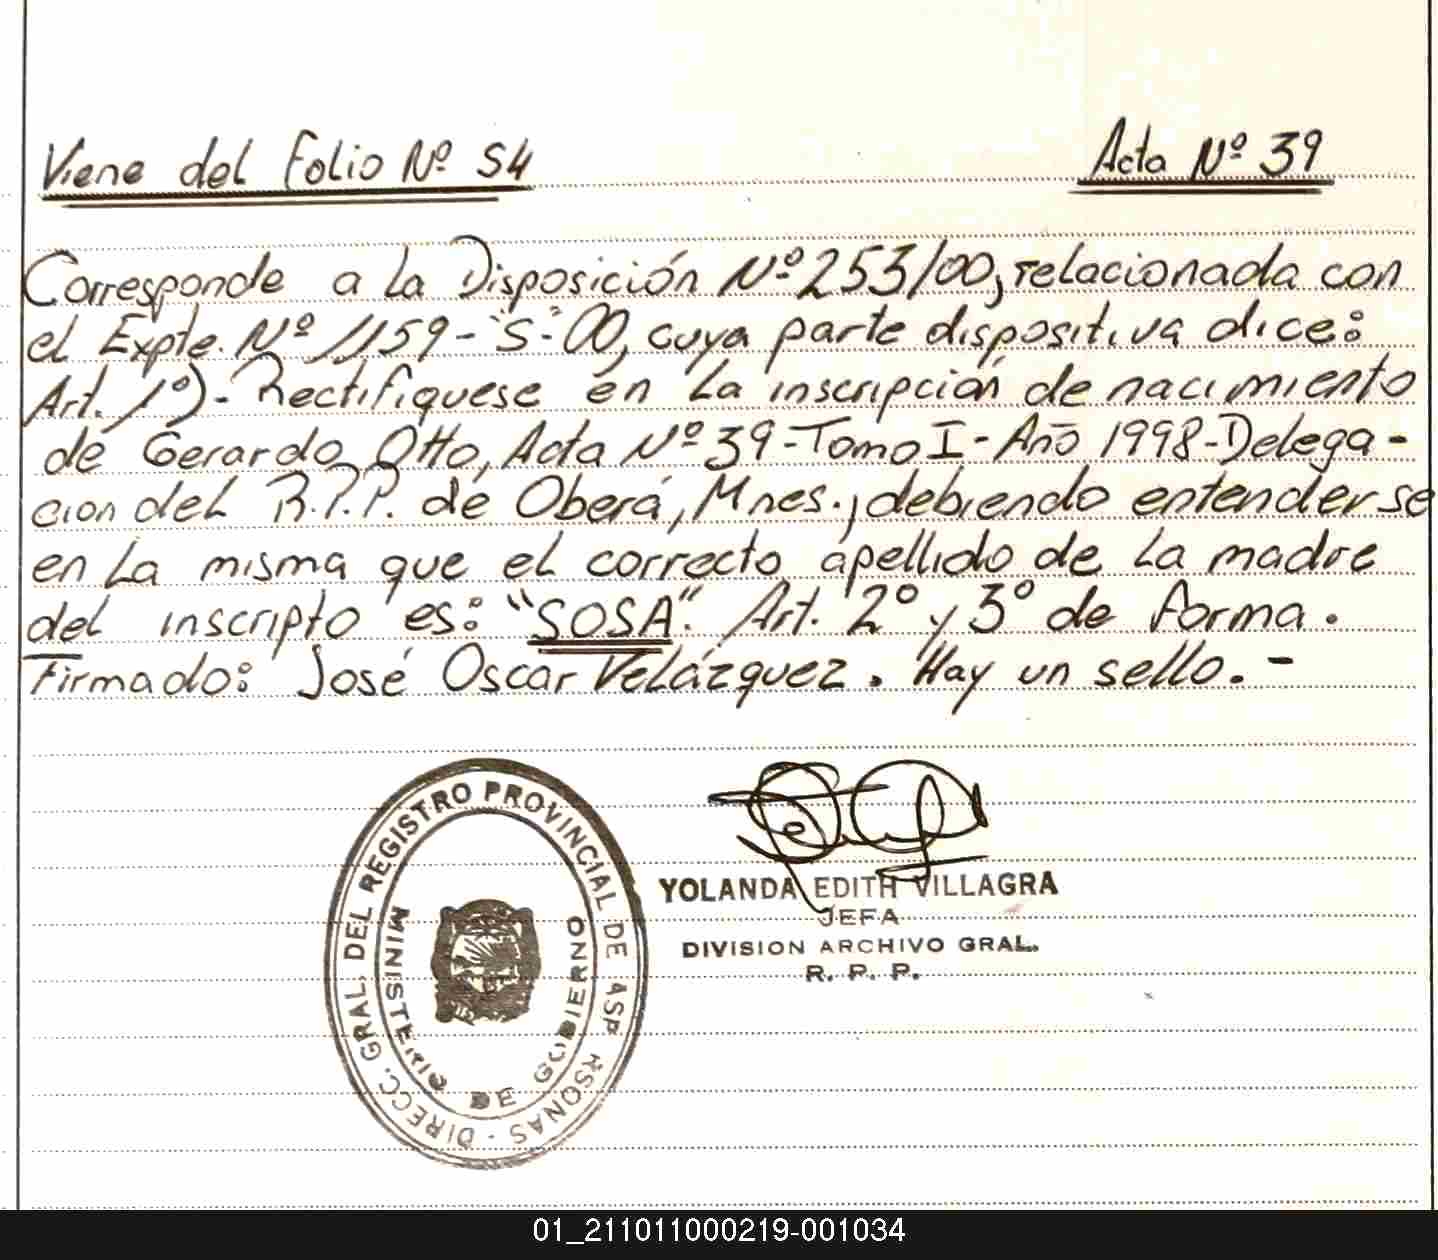 Viene del Folio Nº 54
Acta Nº 39
Corresponde a la Disposición Nº 253/00, relacionada con
el Expte. Nº 1159-"S"-00, cuya parte dispositiva dice:
Art. 1º)- Rectifíquese en la inscripción de nacimiento
de Gerardo Otto, Acta Nº 39-Tomo I-Año 1998-Delega-
cion del R.P.P. de Oberá, Mnes., debiendo entenderse
en la misma que el correcto apellido de la madre
del inscripto es: "SOSA". Art. 2º y 3º de forma.
Firmado: José Oscar Velázquez. Hay un sello.-
DIRECC. GRAL. DEL REGISTRO PROVINCIAL DE
MINISTERIO DE GOBIERNO
YOLANDA EDITH VILLAGRA
JEFA
DIVISION ARCHIVO GRAL.
R. P. P.
01_211011000219-001034